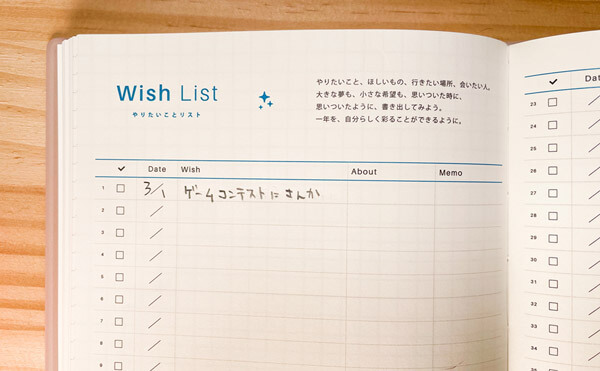 Wish List
やりたいことリスト
やりたいこと、ほしいもの、行きたい場所、会いたい人。
大きな夢も、小さな希望も、思いついた時に、
思いついたように、書き出してみよう。
一年を、自分らしく彩ることができるように。
✓ Date Wish About Memo
1 3/1 ゲームコンテストにさんか
2 /
3 /
4 /
5 /
6 /
7 /
8 /
9
✓ Dat
23
24
25
26
27
28
29
30
31
32
33
34
35
36